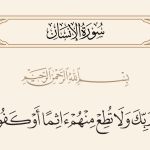 سُورَةُ الْإِنسَانِ
بِسْمِ اللَّهِ الرَّحْمَٰنِ الرَّحِيمِ
رَبِّكَ وَلَا تُطِعْ مِنْهُمْ ءَاثِمًا أَوْ كَفُو